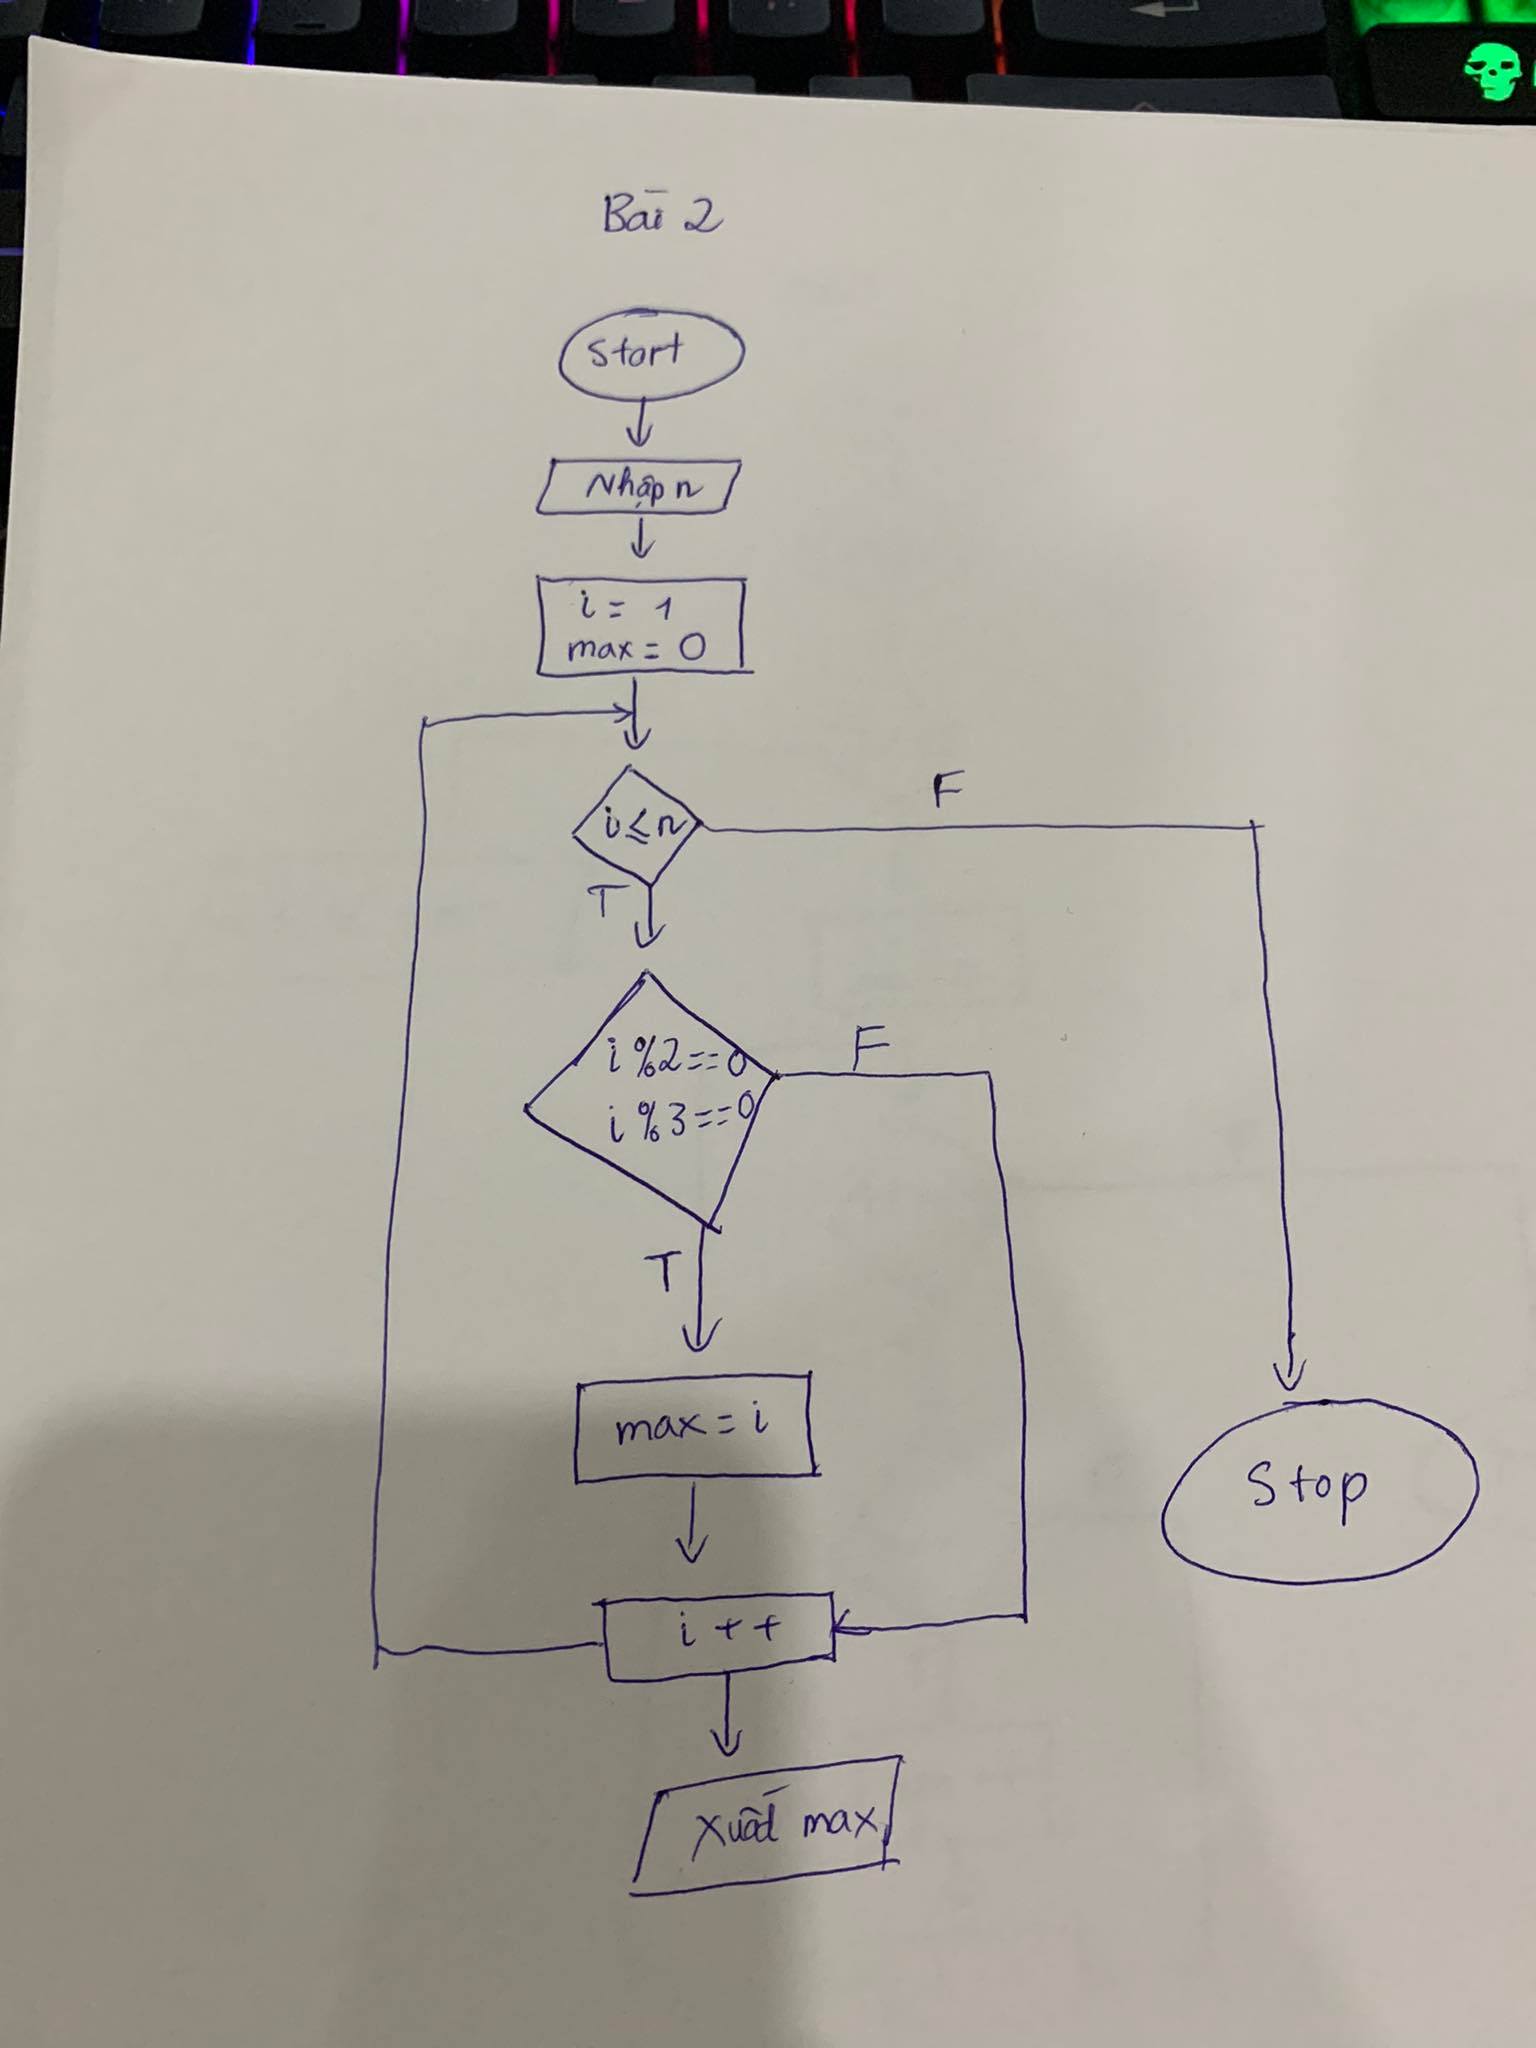 Bài 2
Start
Nhập n
i = 1
max = 0
i ≤ n
F
T
i % 2 == 0
i % 3 == 0
F
T
max = i
Stop
i ++
Xuất max